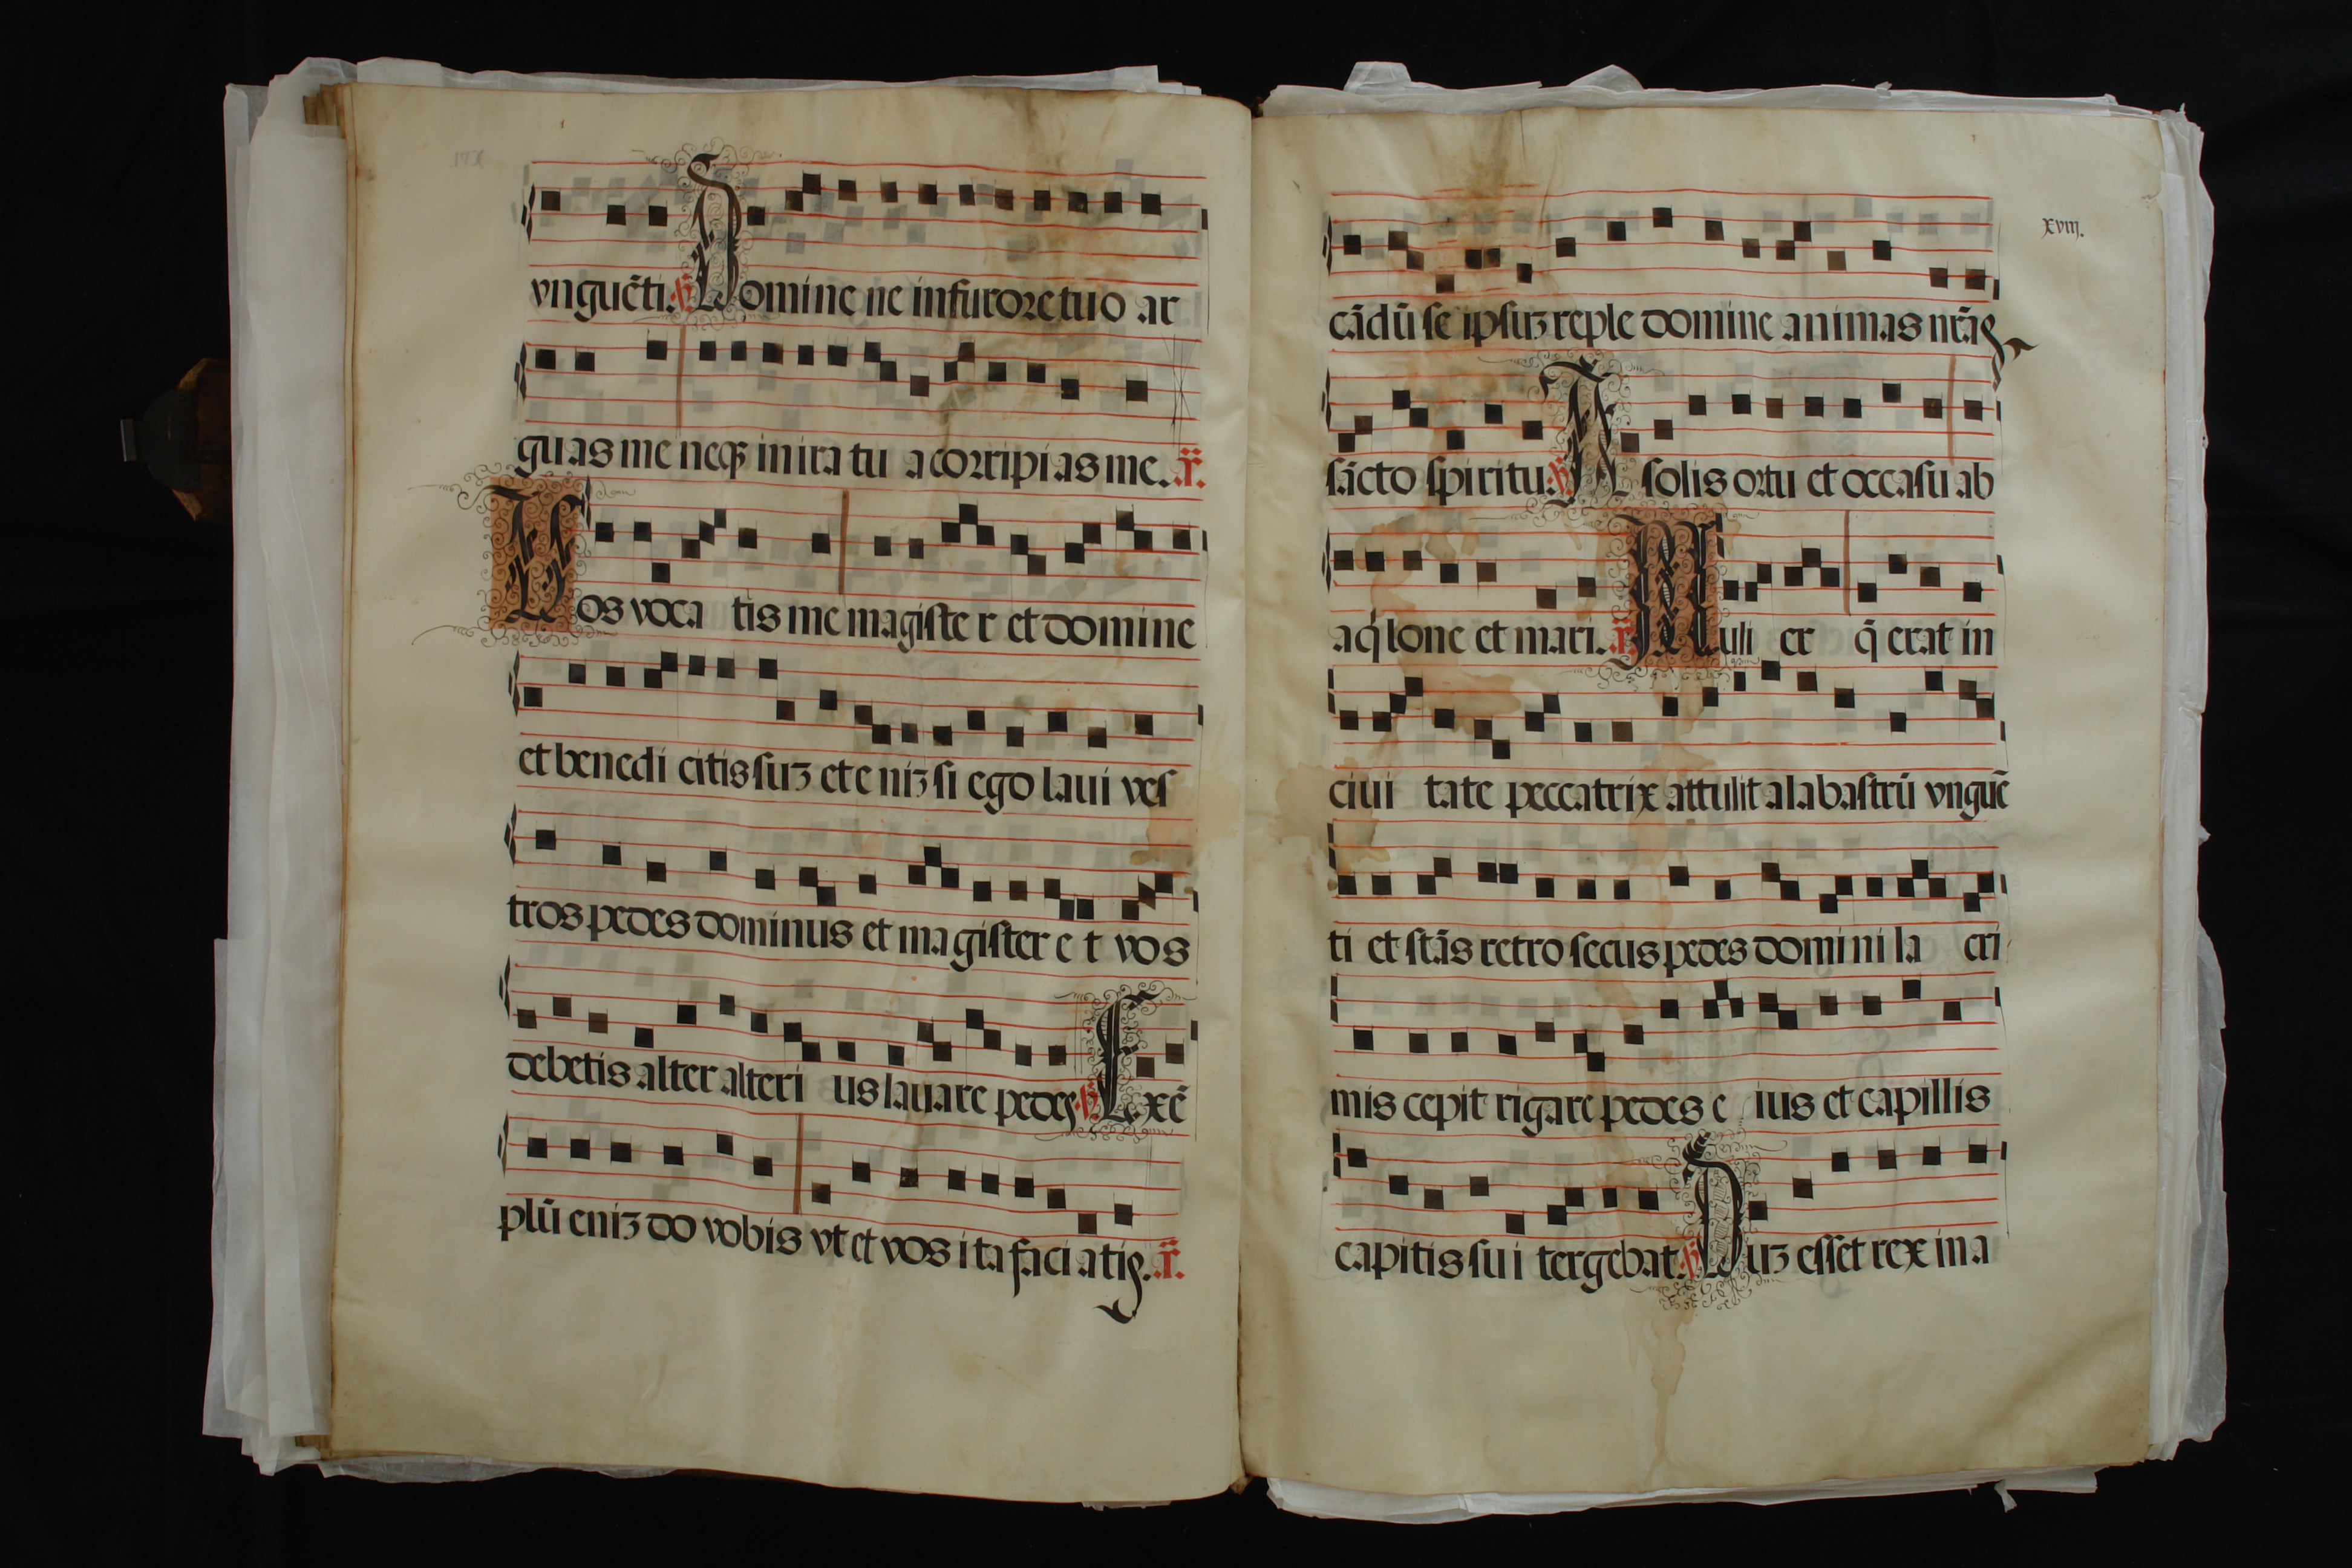 vnguēti. ℣. Domine ne infurore tuo ar
guas me neqꝫ in ira tu a corripias me. ℟.
Vos voca tis me magiste r et domine
et benedi citis suꝫ et e niꝫ si ego laui ves
tros pedes dominus et magister e t vos
debetis alter alteri us lauare pedes ℣. Exē
plū eniꝫ do vobis vt et vos ita faci atis. ℟.
xviij.
cādū se ipsuꝫ reple domine animas nr̄as
sācto spiritu. ℣. A solis ortu et occasu ab
aq̇lone et mari. ℟. Muli er q̄ erat in
ciui tate peccatrix attulit alabastrū vnguē
ti et stās retro secus pedes domini la cri
mis cepit rigare pedes e ius et capillis
capitis su i tergebat. ℣. Duꝫ esset rex in a